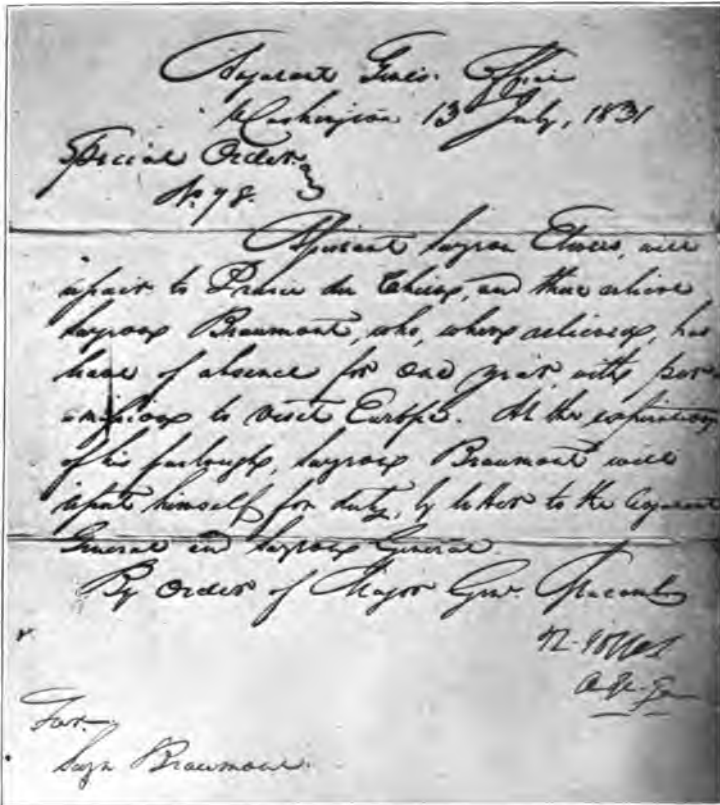 Adjutant Genl's. Office
Washington 13 July, 1831
Special Order
No 78.
Assistant Surgeon Elwes, will
repair to Prairie du Chien, and there relieve
Surgeon Beaumont, who, when relieved, has
leave of absence for one year, with per-
mission to visit Europe. At the expiration
of his furlough, Surgeon Beaumont will
report himself for duty, by letter to the Adjutant
General and Surgeon General.
By Order of Major Genl. Macomb
For.
Surgn Beaumont.